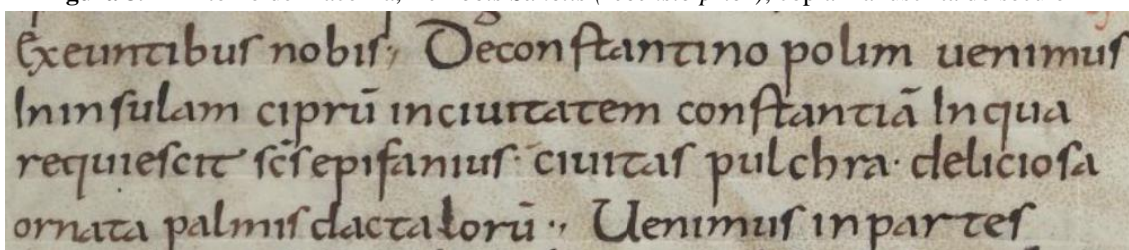 Exeuntibuſ nobiſ, Deconſtantino polim uenimuſ
Ininſulam ciprū inciuitatem conſtantiā Inqua
requieſcit ſc̄ſ epifaniuſ· ciuitaſ pulchra· delicioſa
ornata palmiſ dactalorū ·, Uenimuſ inparteſ